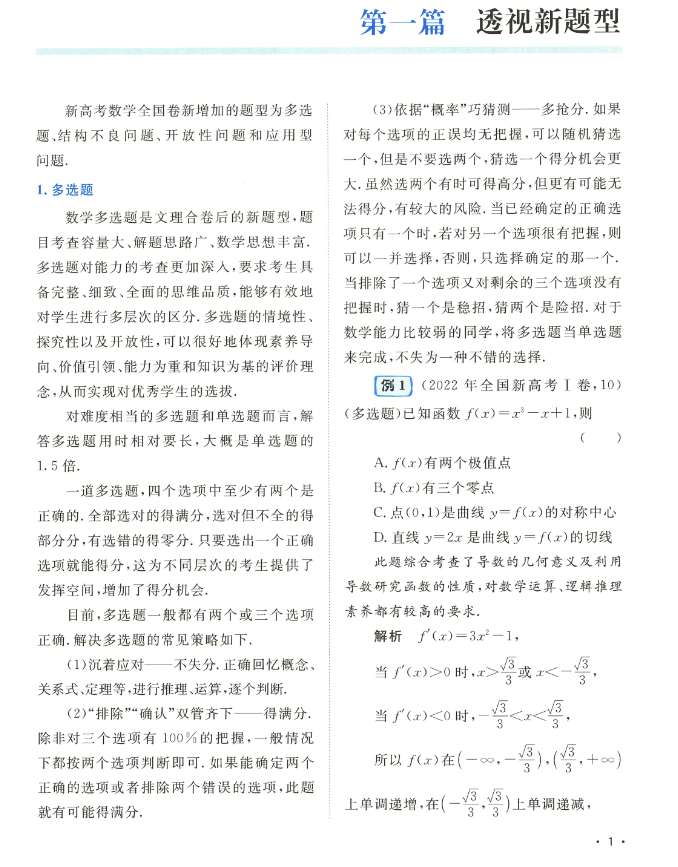 第一篇 透视新题型
新高考数学全国卷新增加的题型为多选
题、结构不良问题、开放性问题和应用型
问题.
1. 多选题
数学多选题是文理合卷后的新题型,题
目考查容量大、解题思路广、数学思想丰富.
多选题对能力的考查更加深入,要求考生具
备完整、细致、全面的思维品质,能够有效地
对学生进行多层次的区分. 多选题的情境性、
探究性以及开放性,可以很好地体现素养导
向、价值引领、能力为重和知识为基的评价理
念,从而实现对优秀学生的选拔.
对难度相当的多选题和单选题而言,解
答多选题用时相对要长,大概是单选题的
1.5 倍.
一道多选题,四个选项中至少有两个是
正确的. 全部选对的得满分,选对但不全的得
部分分,有选错的得零分. 只要选出一个正确
选项就能得分,这为不同层次的考生提供了
发挥空间,增加了得分机会.
目前,多选题一般都有两个或三个选项
正确. 解决多选题的常见策略如下.
(1)沉着应对——不失分. 正确回忆概念、
关系式、定理等,进行推理、运算,逐个判断.
(2)“排除”“确认”双管齐下——得满分.
除非对三个选项有 100%的把握,一般情况
下都按两个选项判断即可. 如果能确定两个
正确的选项或者排除两个错误的选项,此题
就有可能得满分.
(3)依据“概率”巧猜测——多抢分. 如果
对每个选项的正误均无把握,可以随机猜选
一个,但是不要选两个,猜选一个得分机会更
大. 虽然选两个有时可得高分,但更有可能无
法得分,有较大的风险. 当已经确定的正确选
项只有一个时,若对另一个选项很有把握,则
可以一并选择,否则,只选择确定的那一个.
当排除了一个选项又对剩余的三个选项没有
把握时,猜一个是稳招,猜两个是险招. 对于
数学能力比较弱的同学,将多选题当单选题
来完成,不失为一种不错的选择.
例 1 (2022 年全国新高考Ⅰ卷,10)
(多选题)已知函数 f(x)=x³-x+1,则
( )
A. f(x)有两个极值点
B. f(x)有三个零点
C. 点(0,1)是曲线 y=f(x)的对称中心
D. 直线 y=2x 是曲线 y=f(x)的切线
此题综合考查了导数的几何意义及利用
导数研究函数的性质,对数学运算、逻辑推理
素养都有较高的要求.
解析 f′(x)=3x²-1,
当 f′(x)>0 时,x>√3/3或 x<-√3/3,
当 f′(x)<0 时,-√3/3<x<√3/3,
所以 f(x)在(-∞,-√3/3),(√3/3,+∞)
上单调递增,在(-√3/3,√3/3)上单调递减,
· 1 ·